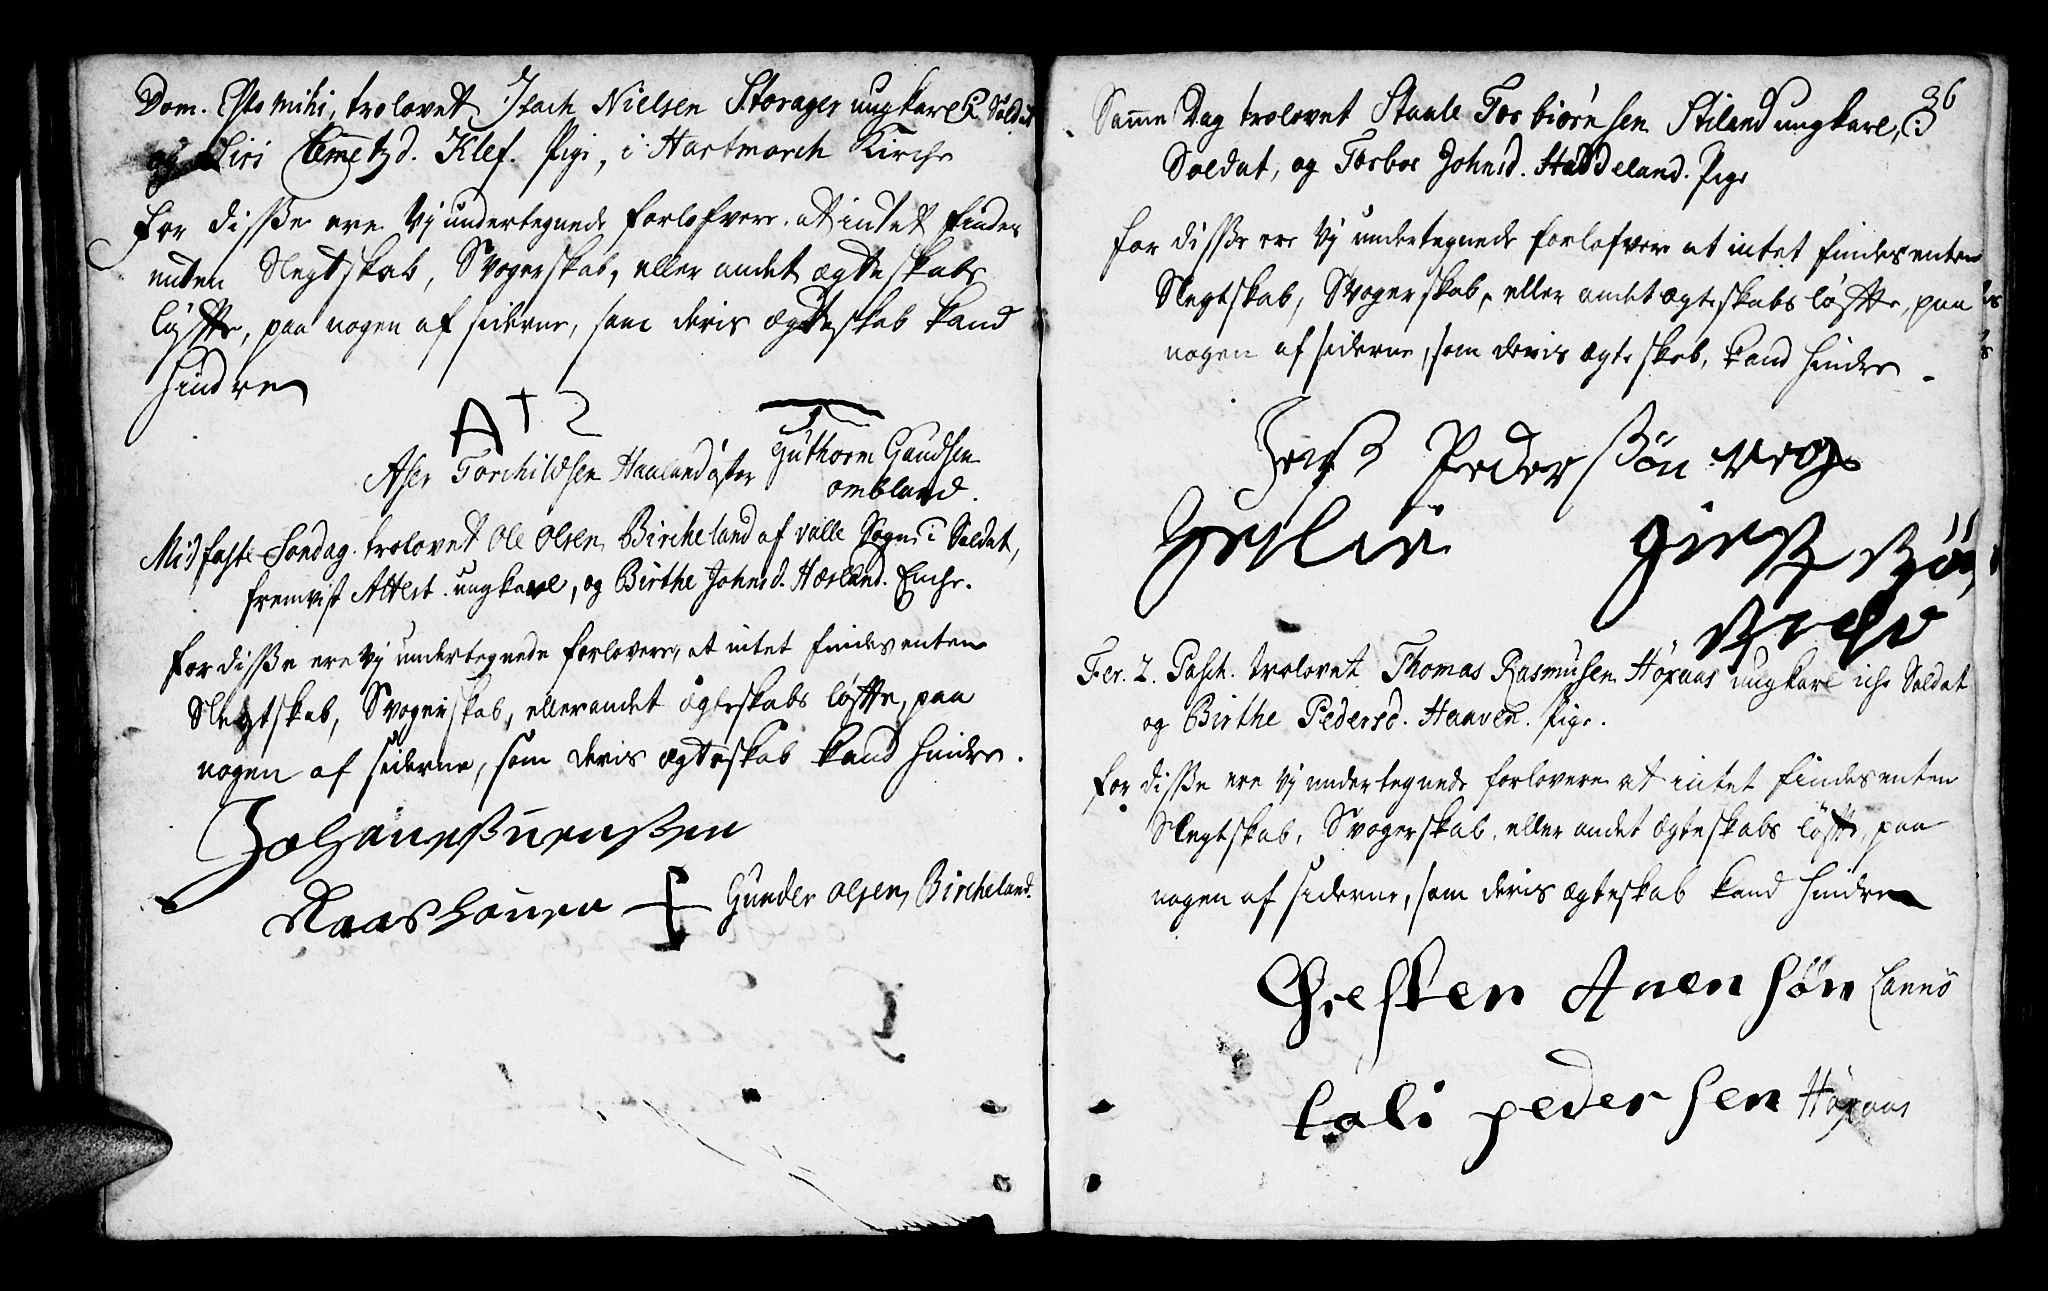 Dom. Esto mihi, trolovet Isach Nielsen Storager ungkarl & Soldat
og Siri Emmetzd. Klef. Pige, i Hartmarch Kirche
for disse ere Vj undertegnede forlofvere at intet findes
enten Slegtskab, Svogerskab, eller andet ægteskabs
løffte, paa nogen af siderne, som deris ægteskab kand
hindre
A T 2
Aser Torchildsen Haaland øster
Guthorm Gundsen
ombland.
Midfaste Søndag trolovet Ole Olsen Bircheland af valle Sogn i Soldat,
fremvist Attest. ungkarl, og Birthe Johnsd. Hærland. Enche.
for disse ere Vj undertegnede forlovere, at intet findes enten
Slegtskab, Svogerskab, eller andet ægteskabs løffte, paa
nogen af siderne, som deris ægteskab kand hindre.
Raashouen
Gunder Olsen Bircheland.
36
Samme Dag trolovet Staale Torbiørnsen Stiland ungkarl, i
Soldat, og Torbor Johnsd. Haddeland. Pige
for disse ere Vj undertegnede forlofvere at intet findes enten
Slegtskab, Svogerskab, eller andet ægteskabs løffte, paa
nogen af siderne, som deris ægteskab, kand hindre.
Pedersøn
Fer. 2. Pasch. trolovet Thomas Rasmusen Høyaas ungkarl iche Soldat
og Birthe Pedersd. Haaven. Pige.
for disse ere Vj undertegnede forlovere at intet findes enten
Slegtskab, Svogerskab, eller andet ægteskabs løffte, paa
nogen af siderne, som deris ægteskab kand hindre
Chresten Anensøn Lannø
tali pedersen Høyaas